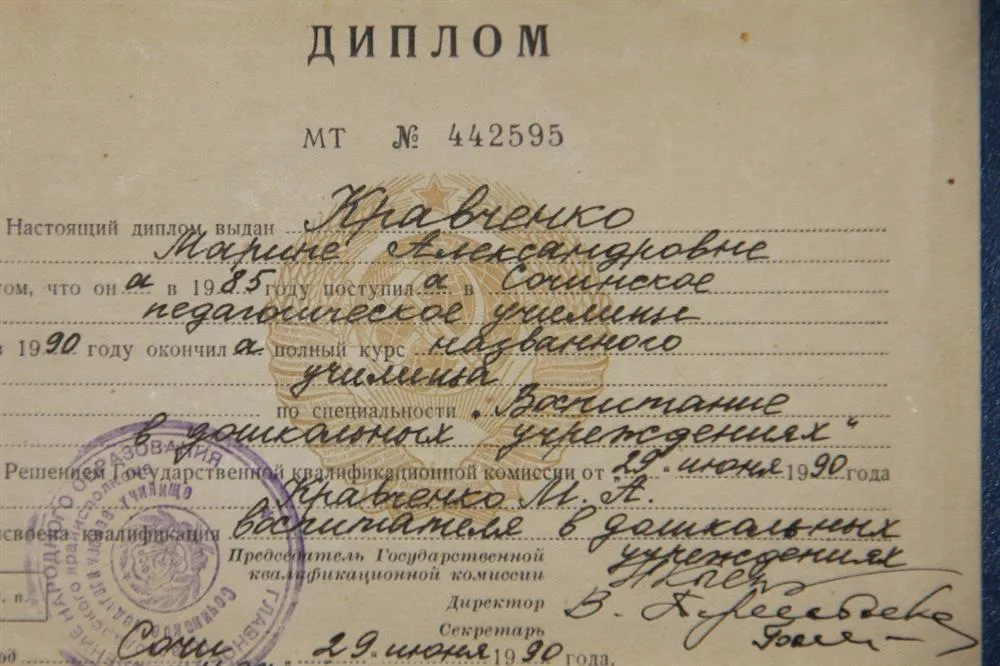 ДИПЛОМ
МТ № 442595
Настоящий диплом выдан Кравченко
Марине Александровне
том, что он а в 1985 году поступил а в Сочинское
педагогическое училище
в 1990 году окончил а полный курс названного
училища
по специальности „Воспитание
в дошкольных учреждениях"
Решением Государственной квалификационной комиссии от „29" июня 1990 года
Кравченко М. А.
исвоена квалификация воспитателя в дошкольных
учреждениях
Председатель Государственной
квалификационной комиссии
Директор В.
Секретарь
од Сочи 29 июня 1990 года.
п.
НАРОДНОГО ОБРАЗОВАНИЯ
ГЛАВНО
УЧИЛИЩЕ
Сочинское